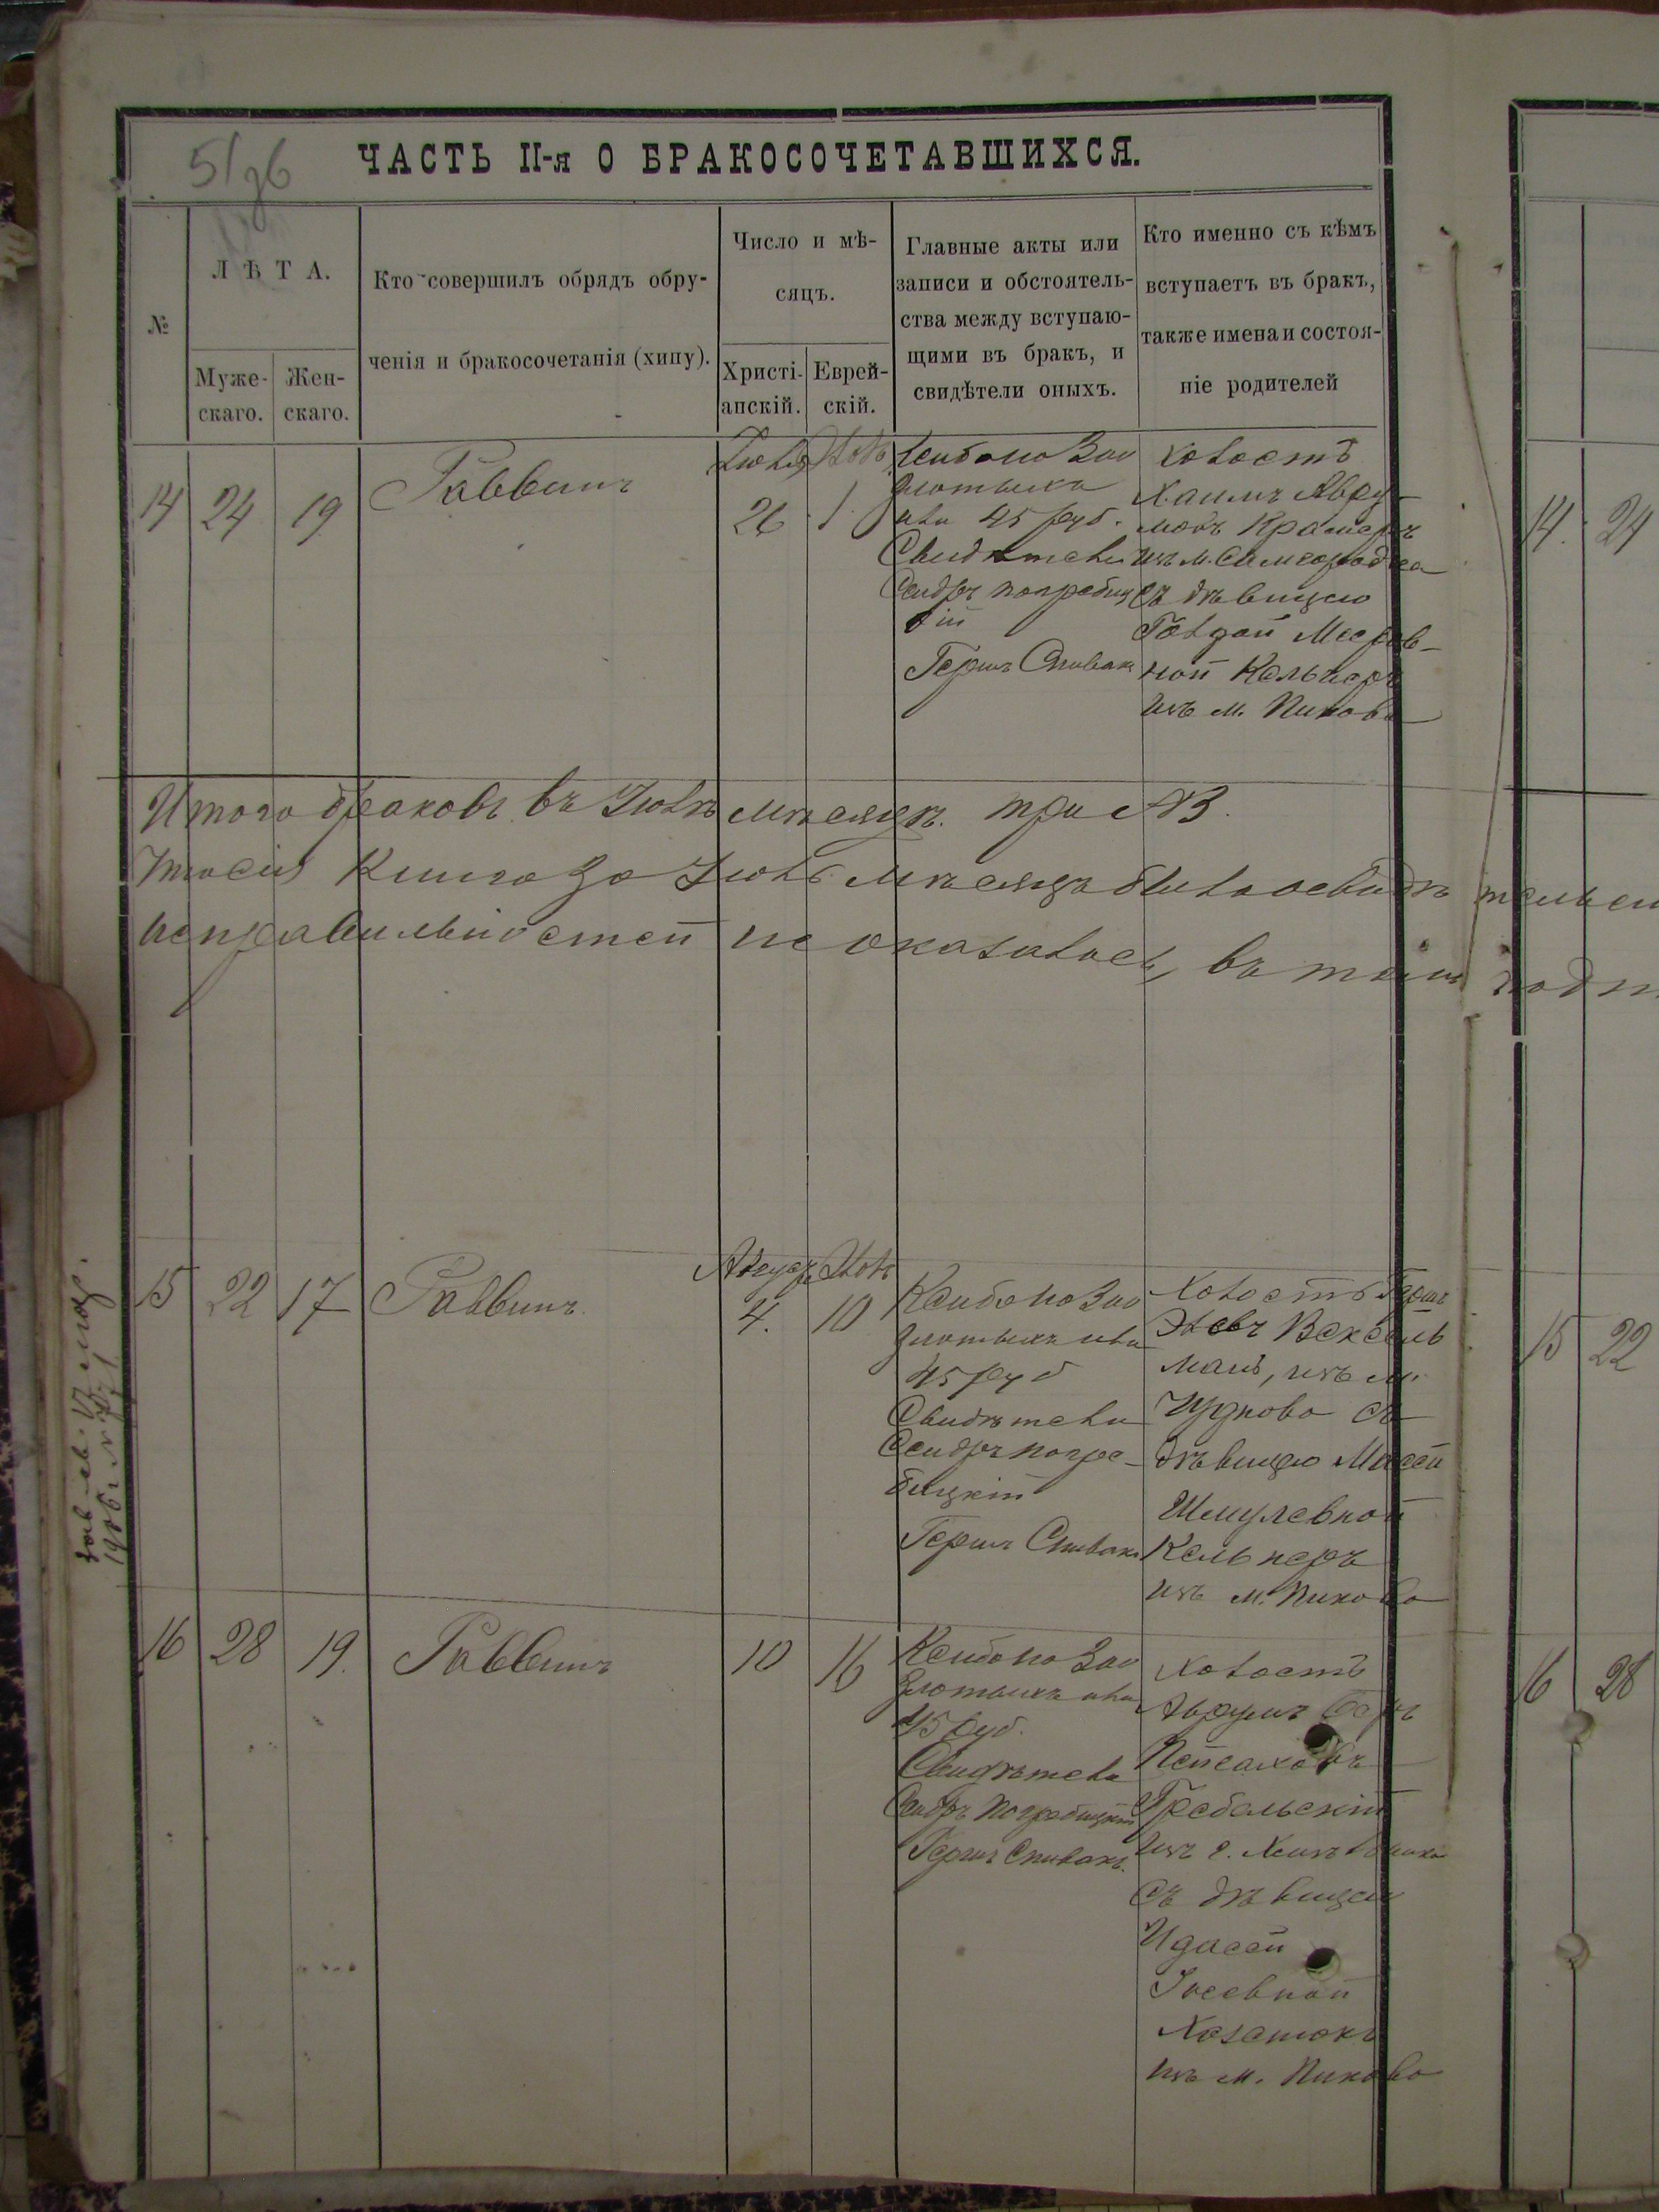 ЧАСТЬ II-я О БРАКОСОЧЕТАВШИХСЯ.
№
ЛѢТА.
Муже-
скаго.
Жен-
скаго.
Кто совершилъ обрядъ обру-
ченія и бракосочетанія (хипу).
Число и мѣ-
сяцъ.
Христі-
анскій.
Еврей-
скій.
Главные акты или
записи и обстоятель-
ства между вступаю-
щими въ бракъ, и
свидѣтели оныхъ.
Кто именно съ кѣмъ
вступаетъ въ бракъ,
также имена и состоя-
ніе родителей
14
24
19
Раввинъ
Іюля
26
1
злотыхъ
или 45 руб.
Свидѣтели
Сендръ Погребиц
кій
Гершъ Спивакъ
Холостъ
Хаимъ Авру-
мовъ Крамеръ
изъ м. Самгородка
съ дѣвицею
Голдой Мееров-
ной Кельнеръ
изъ м. Пикова
Итого браковъ въ Іюлѣ мѣсяцѣ три
книга за Іюль мѣсяцъ была освидѣтельс
неправильностей не оказалось, въ томъ подп
15
22
17
Раввинъ
4.
10
злотыхъ или
45 руб
Свидѣтели
Сендръ Погре-
бицкій
Гершъ Спивакъ
Холостъ Гершъ
Вексель
манъ, изъ м.
Чуднова съ
дѣвицею
Шмулевной
Кельнеръ
изъ м. Пикова
16
28
19.
Раввинъ
10
16
злотыхъ или
45 руб.
Свидѣтели
Сендръ Погребицкій
Гершъ Спивакъ.
Холостъ
Аврумъ Беръ
Пейсаховъ
Гребельскій
съ дѣвицею
Идасей
Іосевной
изъ м. Пикова
14.
24
15
22
16
28